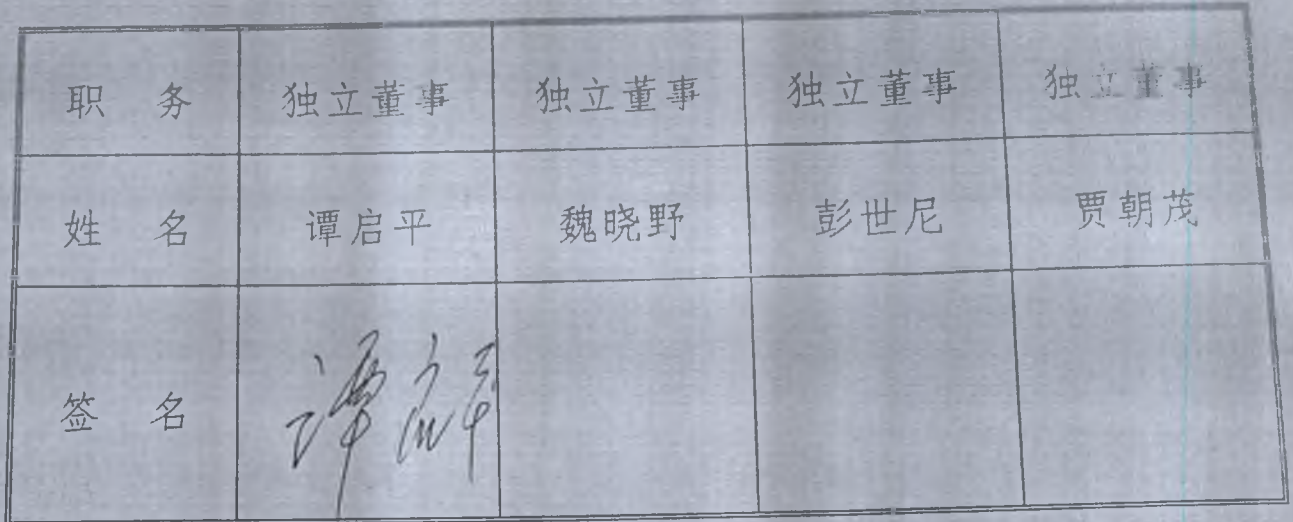 职 务 独立董事 独立董事 独立董事 独立董事
姓 名 谭启平 魏晓野 彭世尼 贾朝茂
签 名 谭启平